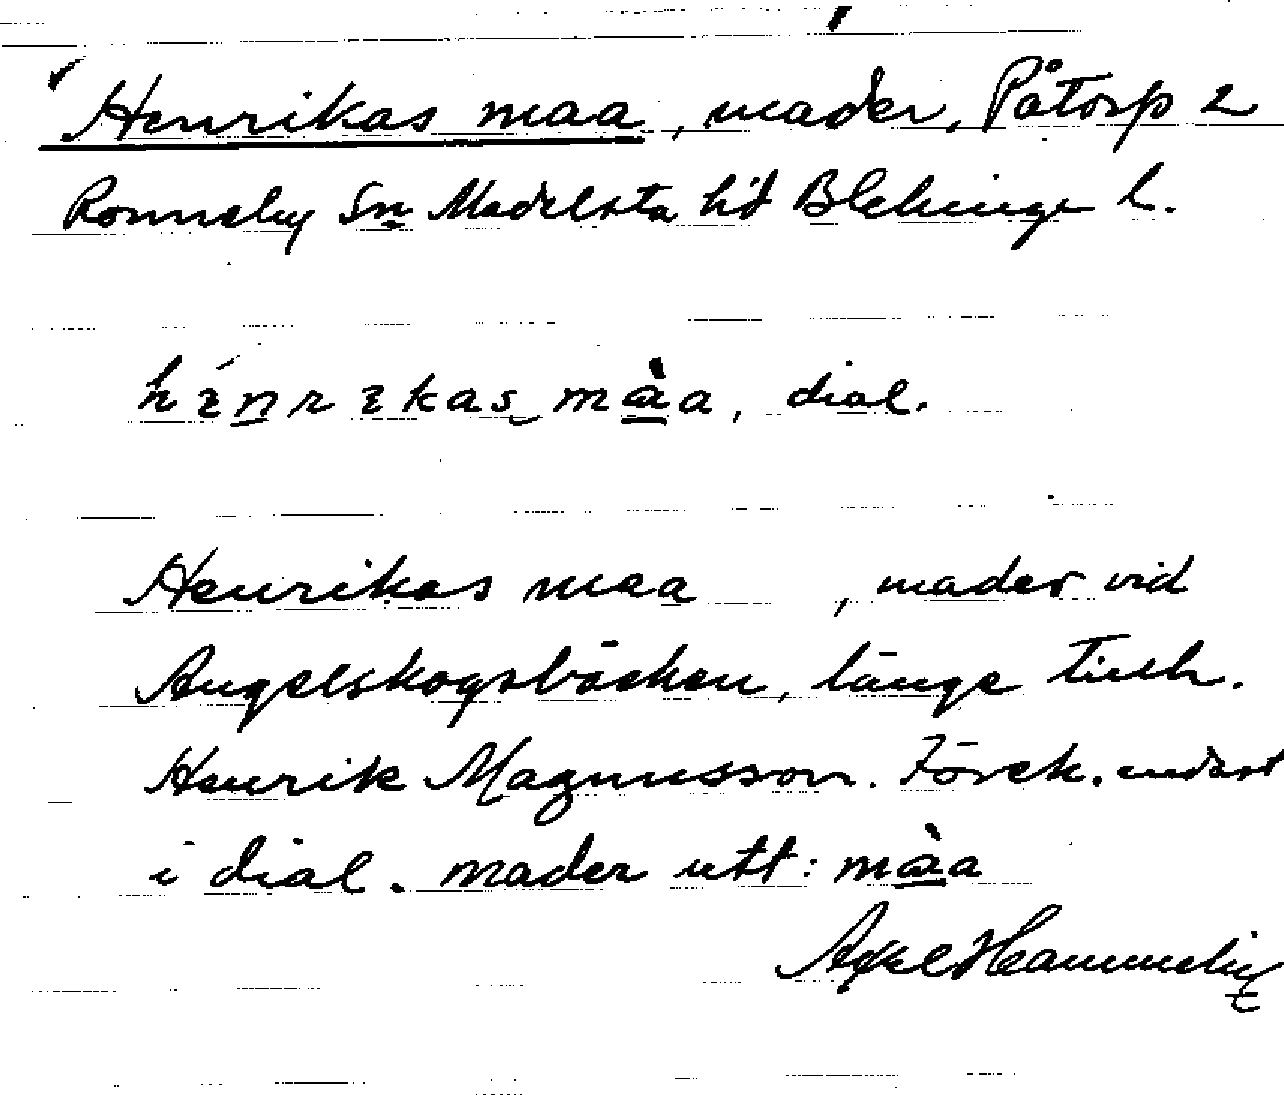 Henrikas maa, mader, Påtorp 2
Ronneby Sn Medelsta hd Blekinge l.
hénrikas màa, dial.
Henrikas maa, mader vid
Angelskogsbäcken, länge tillh.
Henrik Magnusson. Förek. endast
i dial. mader utt: màa
Axel Hammelin